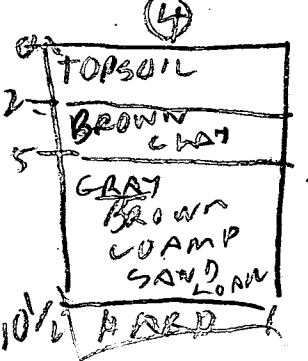 4
0
TOPSOIL
2
BROWN
CLAY
5
GRAY
BROWN
LOAMP
SAND
LOAM
10½ HARD